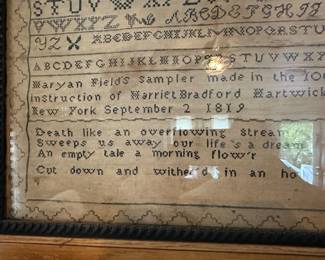 STUVWXYZ
VWXYZ ABCDEFGHIJ
YZ ABCDEFGHIJKLMNOPQRSTU
ABCDEFGHIJKLMNOPQRSTUVWXYZ
Maryan Field's Sampler made in the 10
instruction of Harriet Bradford Hartwick
New York September 2 1819
Death like an overflowing stream
Sweeps us away our life's a dream
An empty tale a morning flow'r
Cut down and wither'd in an ho